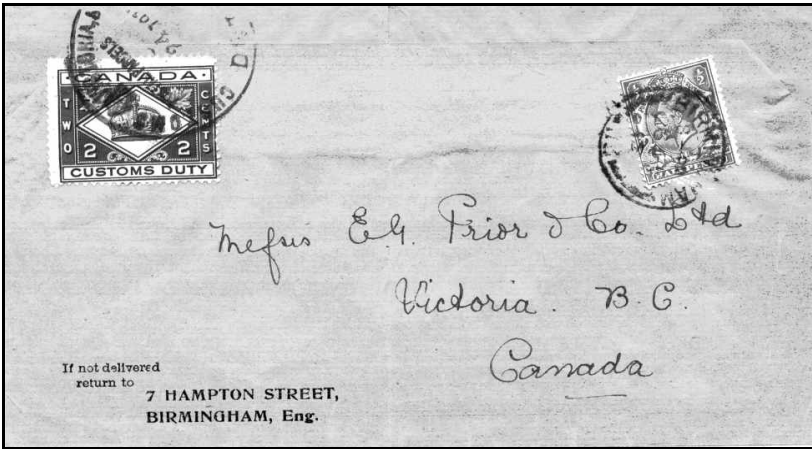 VICTORIA, B
CANADA
TWO CENTS
2 2
CUSTOMS DUTY
BIRM
AM
Messrs E.G. Prior & Co. Ltd
Victoria. B.C.
Canada
If not delivered
return to
7 HAMPTON STREET,
BIRMINGHAM, Eng.